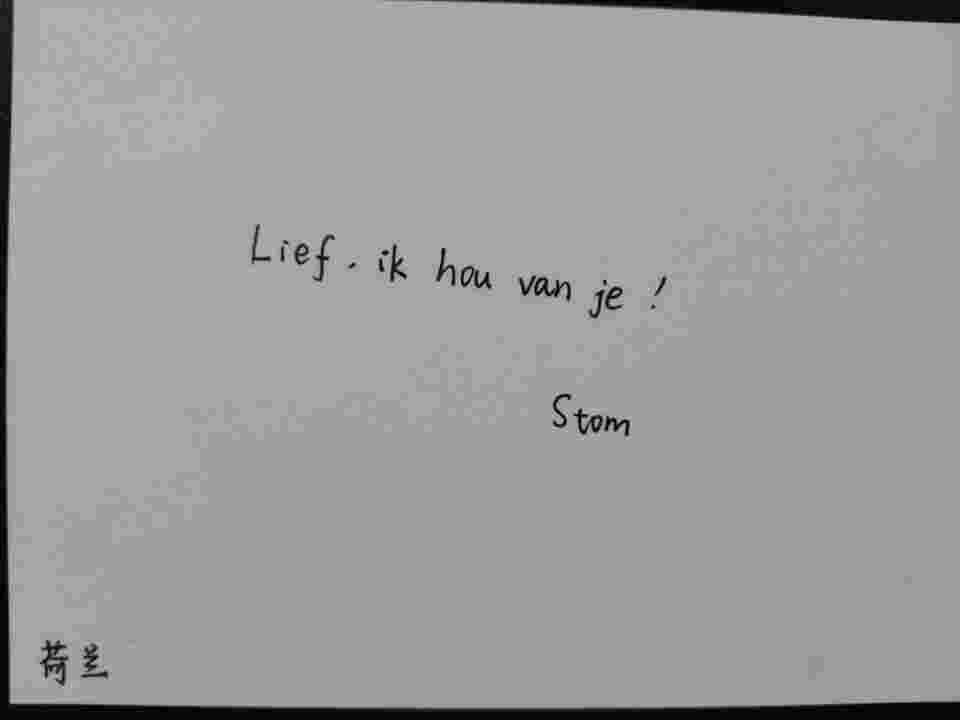 Lief. ik hou van je !
Stom
荷兰